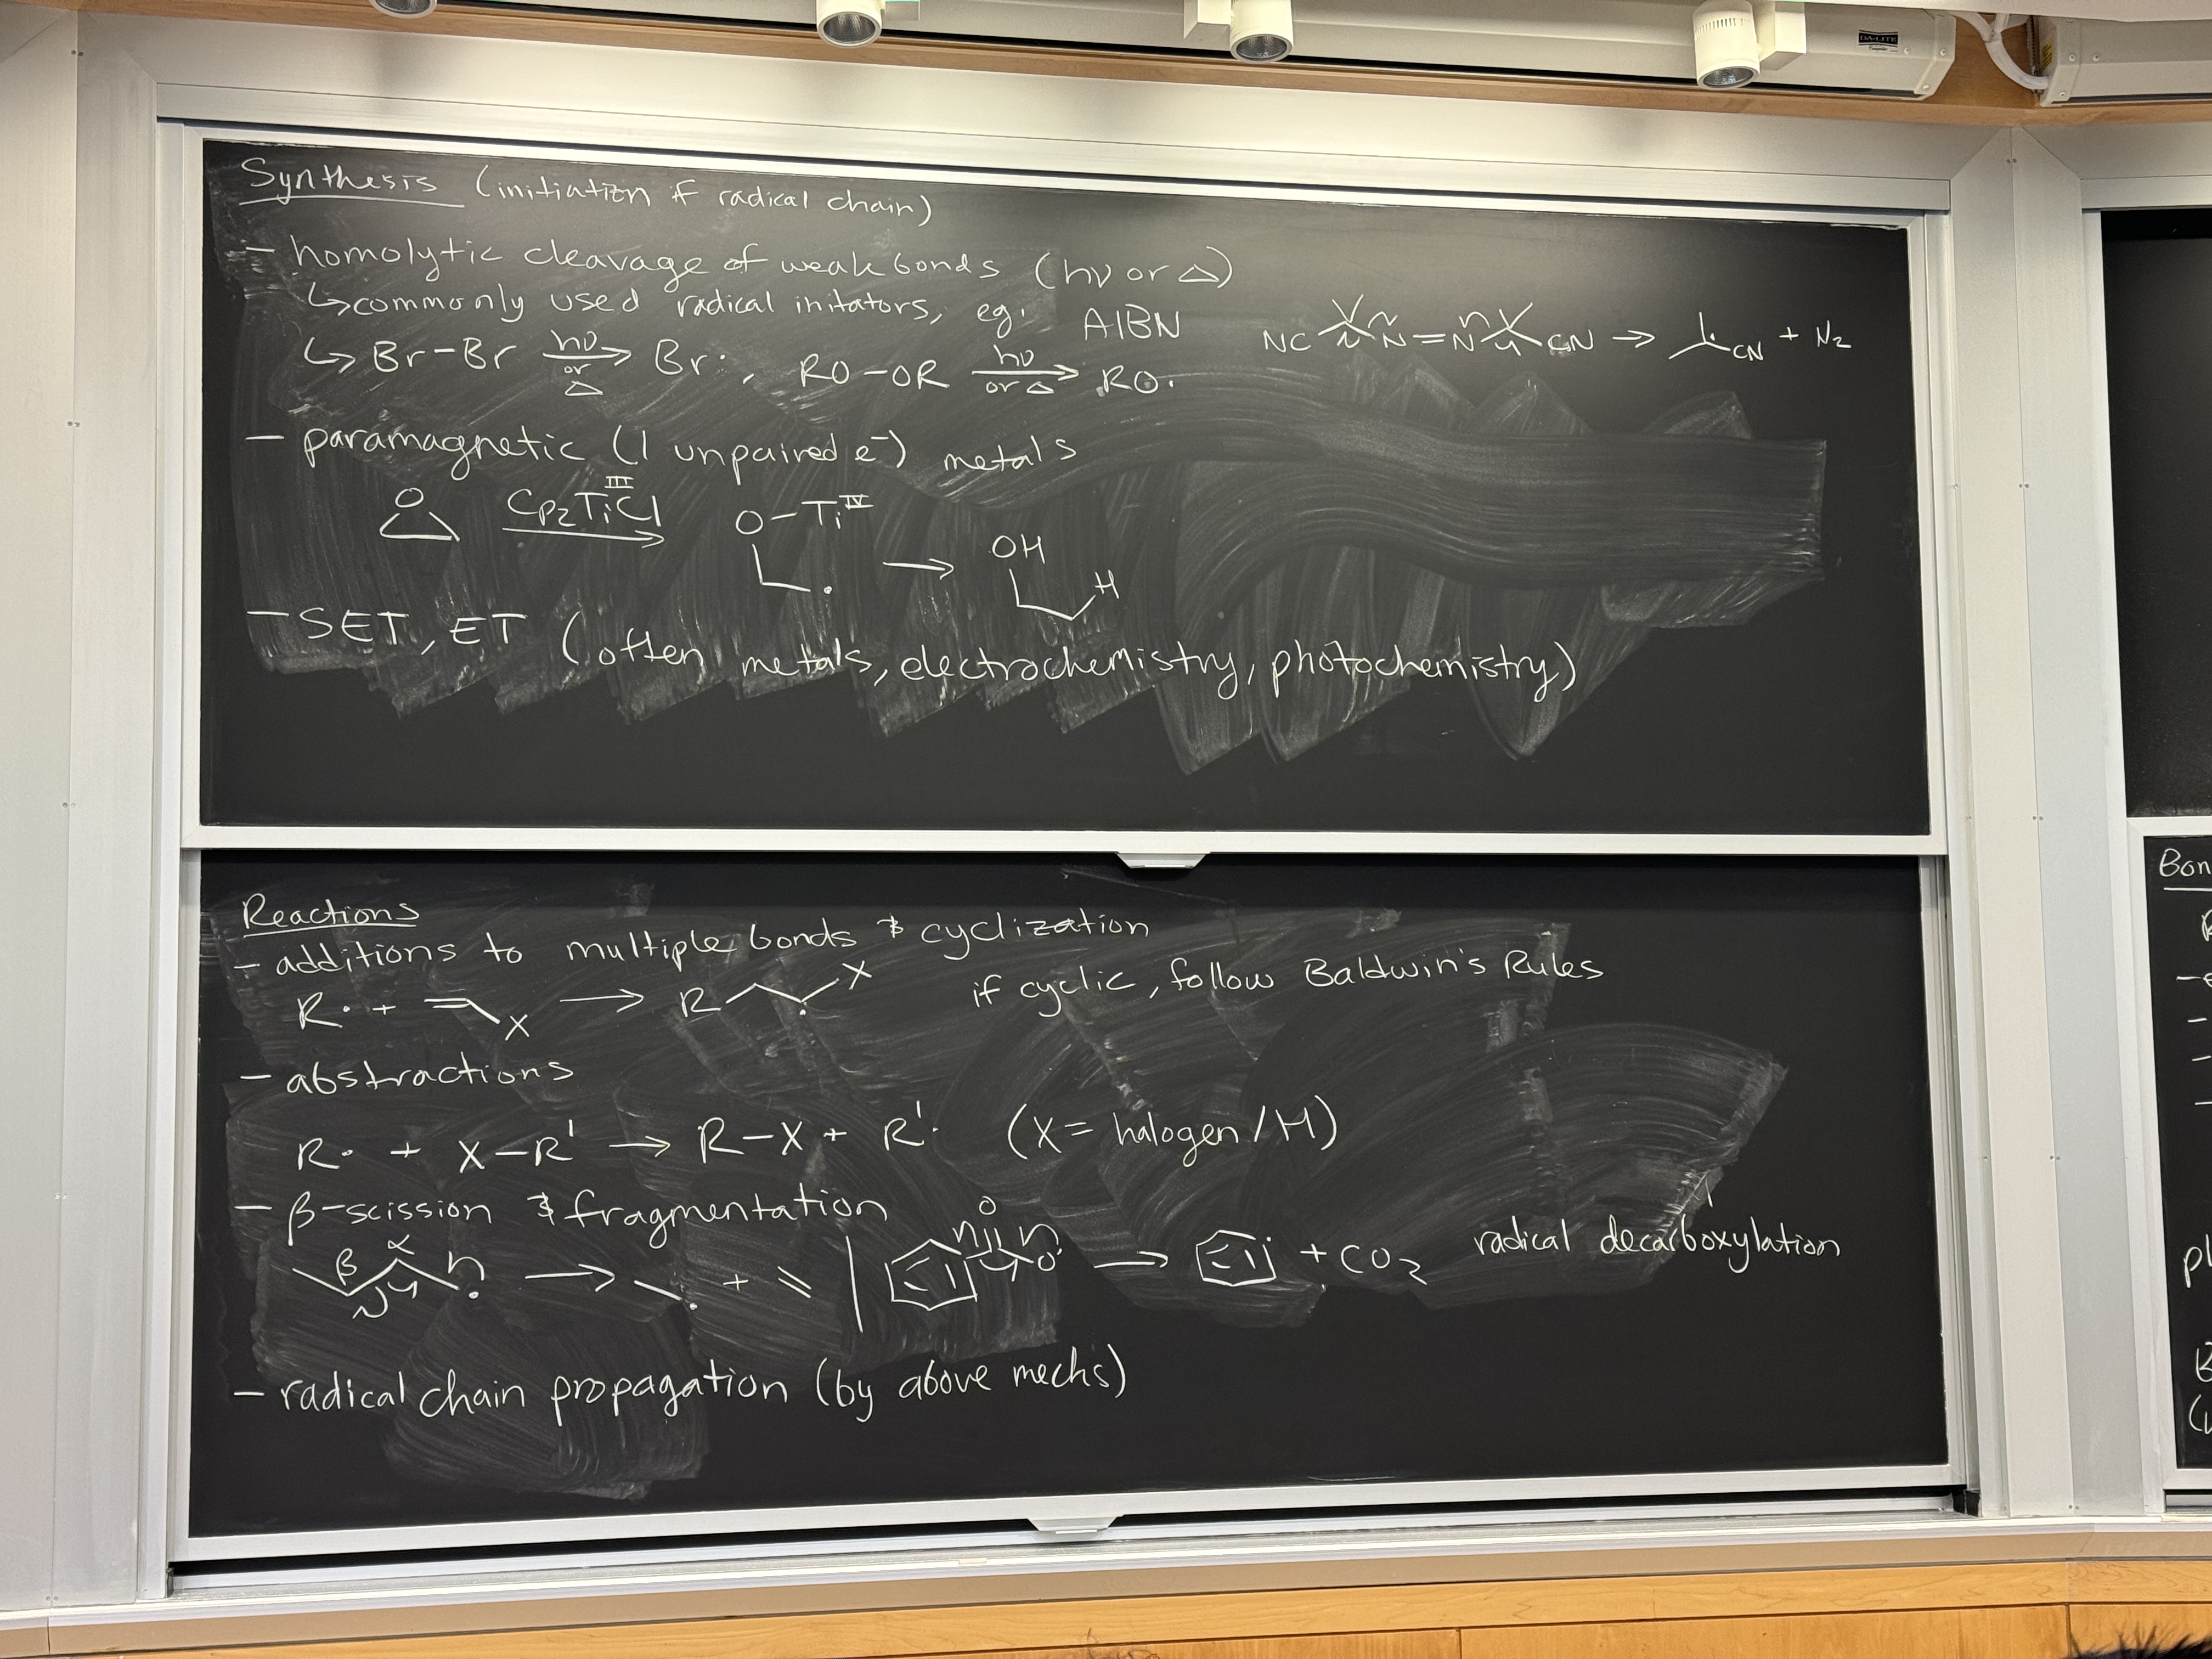 DA-LITE
Synthesis (initiation if radical chain)
- homolytic cleavage of weak bonds (hν or Δ)
↳ commonly used radical initators, eg. AIBN NC N=N CN → CN + N₂
↳ Br-Br hν or Δ → Br· , RO-OR hν or Δ → RO·
- paramagnetic (1 unpaired e⁻) metals
O Cp₂TiᴵᴵᴵCl → O-Tiᴵⱽ · → OH H
- SET, ET (often metals, electrochemistry, photochemistry)
Reactions
- additions to multiple bonds & cyclization
R· + X → R · X if cyclic, follow Baldwin's Rules
- abstractions
R· + X-R' → R-X + R'· (X = halogen/H)
- β-scission & fragmentation
β α · → · + | O O· → · + CO₂ radical decarboxylation
- radical chain propagation (by above mechs)
Bon
pl